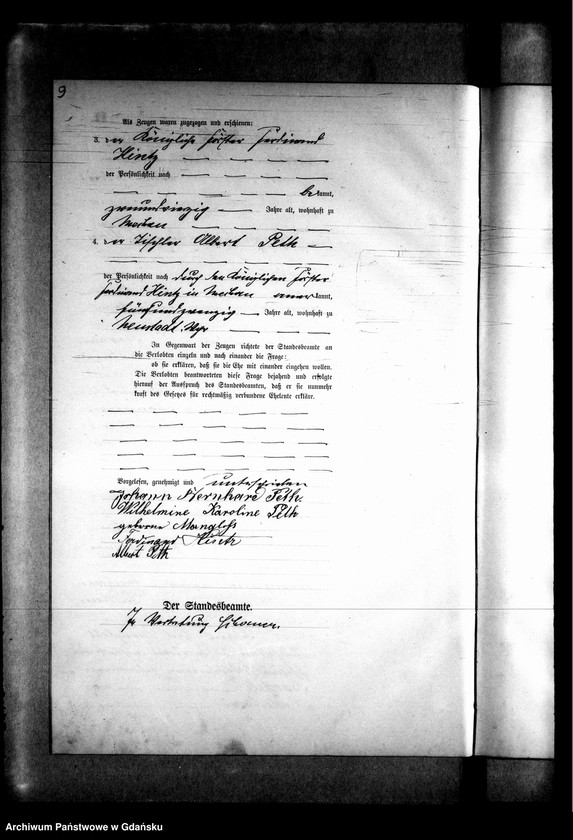 9
Als Zeugen waren zugezogen und erschienen:
3. der Königliche Förster Ferdinand
Hintz
der Persönlichkeit nach
bekannt,
zweiundvierzig Jahre alt, wohnhaft zu
4. der Tischler Albert Peth
der Persönlichkeit nach durch den Königlichen Förster
Ferdinand Hintz in anerkannt,
fünfundzwanzig Jahre alt, wohnhaft zu
Neustadt Wpr
In Gegenwart der Zeugen richtete der Standesbeamte an
die Verlobten einzeln und nach einander die Frage:
ob sie erklären, daß sie die Ehe mit einander eingehen wollen.
Die Verlobten beantworteten diese Frage bejahend und erfolgte
hierauf der Ausspruch des Standesbeamten, daß er sie nunmehr
kraft des Gesetzes für rechtmäßig verbundene Eheleute erkläre.
Vorgelesen, genehmigt und unterschrieben
Johann Bernhard Peth
Wilhelmine Karoline Peth
geborne
Ferdinand Hintz
Albert Peth
Der Standesbeamte.
In Vertretung
Archiwum Państwowe w Gdańsku